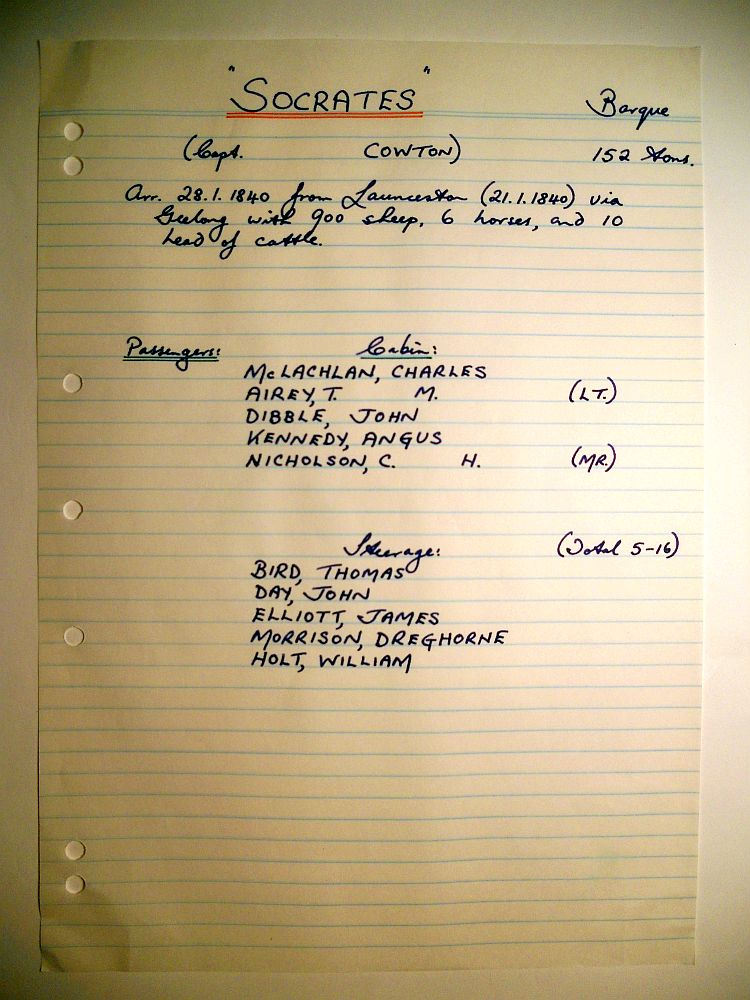 "SOCRATES" Barque
(Capt. COWTON) 152 tons.
Arr. 28.1.1840 from Launceston (21.1.1840) via
Geelong with 900 sheep, 6 horses, and 10
head of cattle.
Passengers: Cabin:
McLACHLAN, CHARLES
AIREY, T. M. (LT.)
DIBBLE, JOHN
KENNEDY, ANGUS
NICHOLSON, C. H. (MR.)
Steerage: (Total 5-16)
BIRD, THOMAS
DAY, JOHN
ELLIOTT, JAMES
MORRISON, DREGHORNE
HOLT, WILLIAM